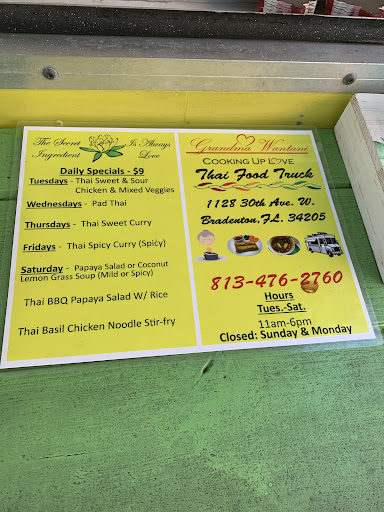 The Secret
Ingredient
Is Always
Love
Daily Specials - $9
Tuesdays - Thai Sweet & Sour
Chicken & Mixed Veggies
Wednesdays - Pad Thai
Thursdays - Thai Sweet Curry
Fridays - Thai Spicy Curry (Spicy)
Saturday - Papaya Salad or Coconut
Lemon Grass Soup (Mild or Spicy)
Thai BBQ Papaya Salad W/ Rice
Thai Basil Chicken Noodle Stir-fry
Grandma Wantani
COOKING UP LOVE
Thai Food Truck
1128 30th Ave. W.
Bradenton,FL. 34205
813-476-2760
Hours
Tues.-Sat.
11am-6pm
Closed: Sunday & Monday